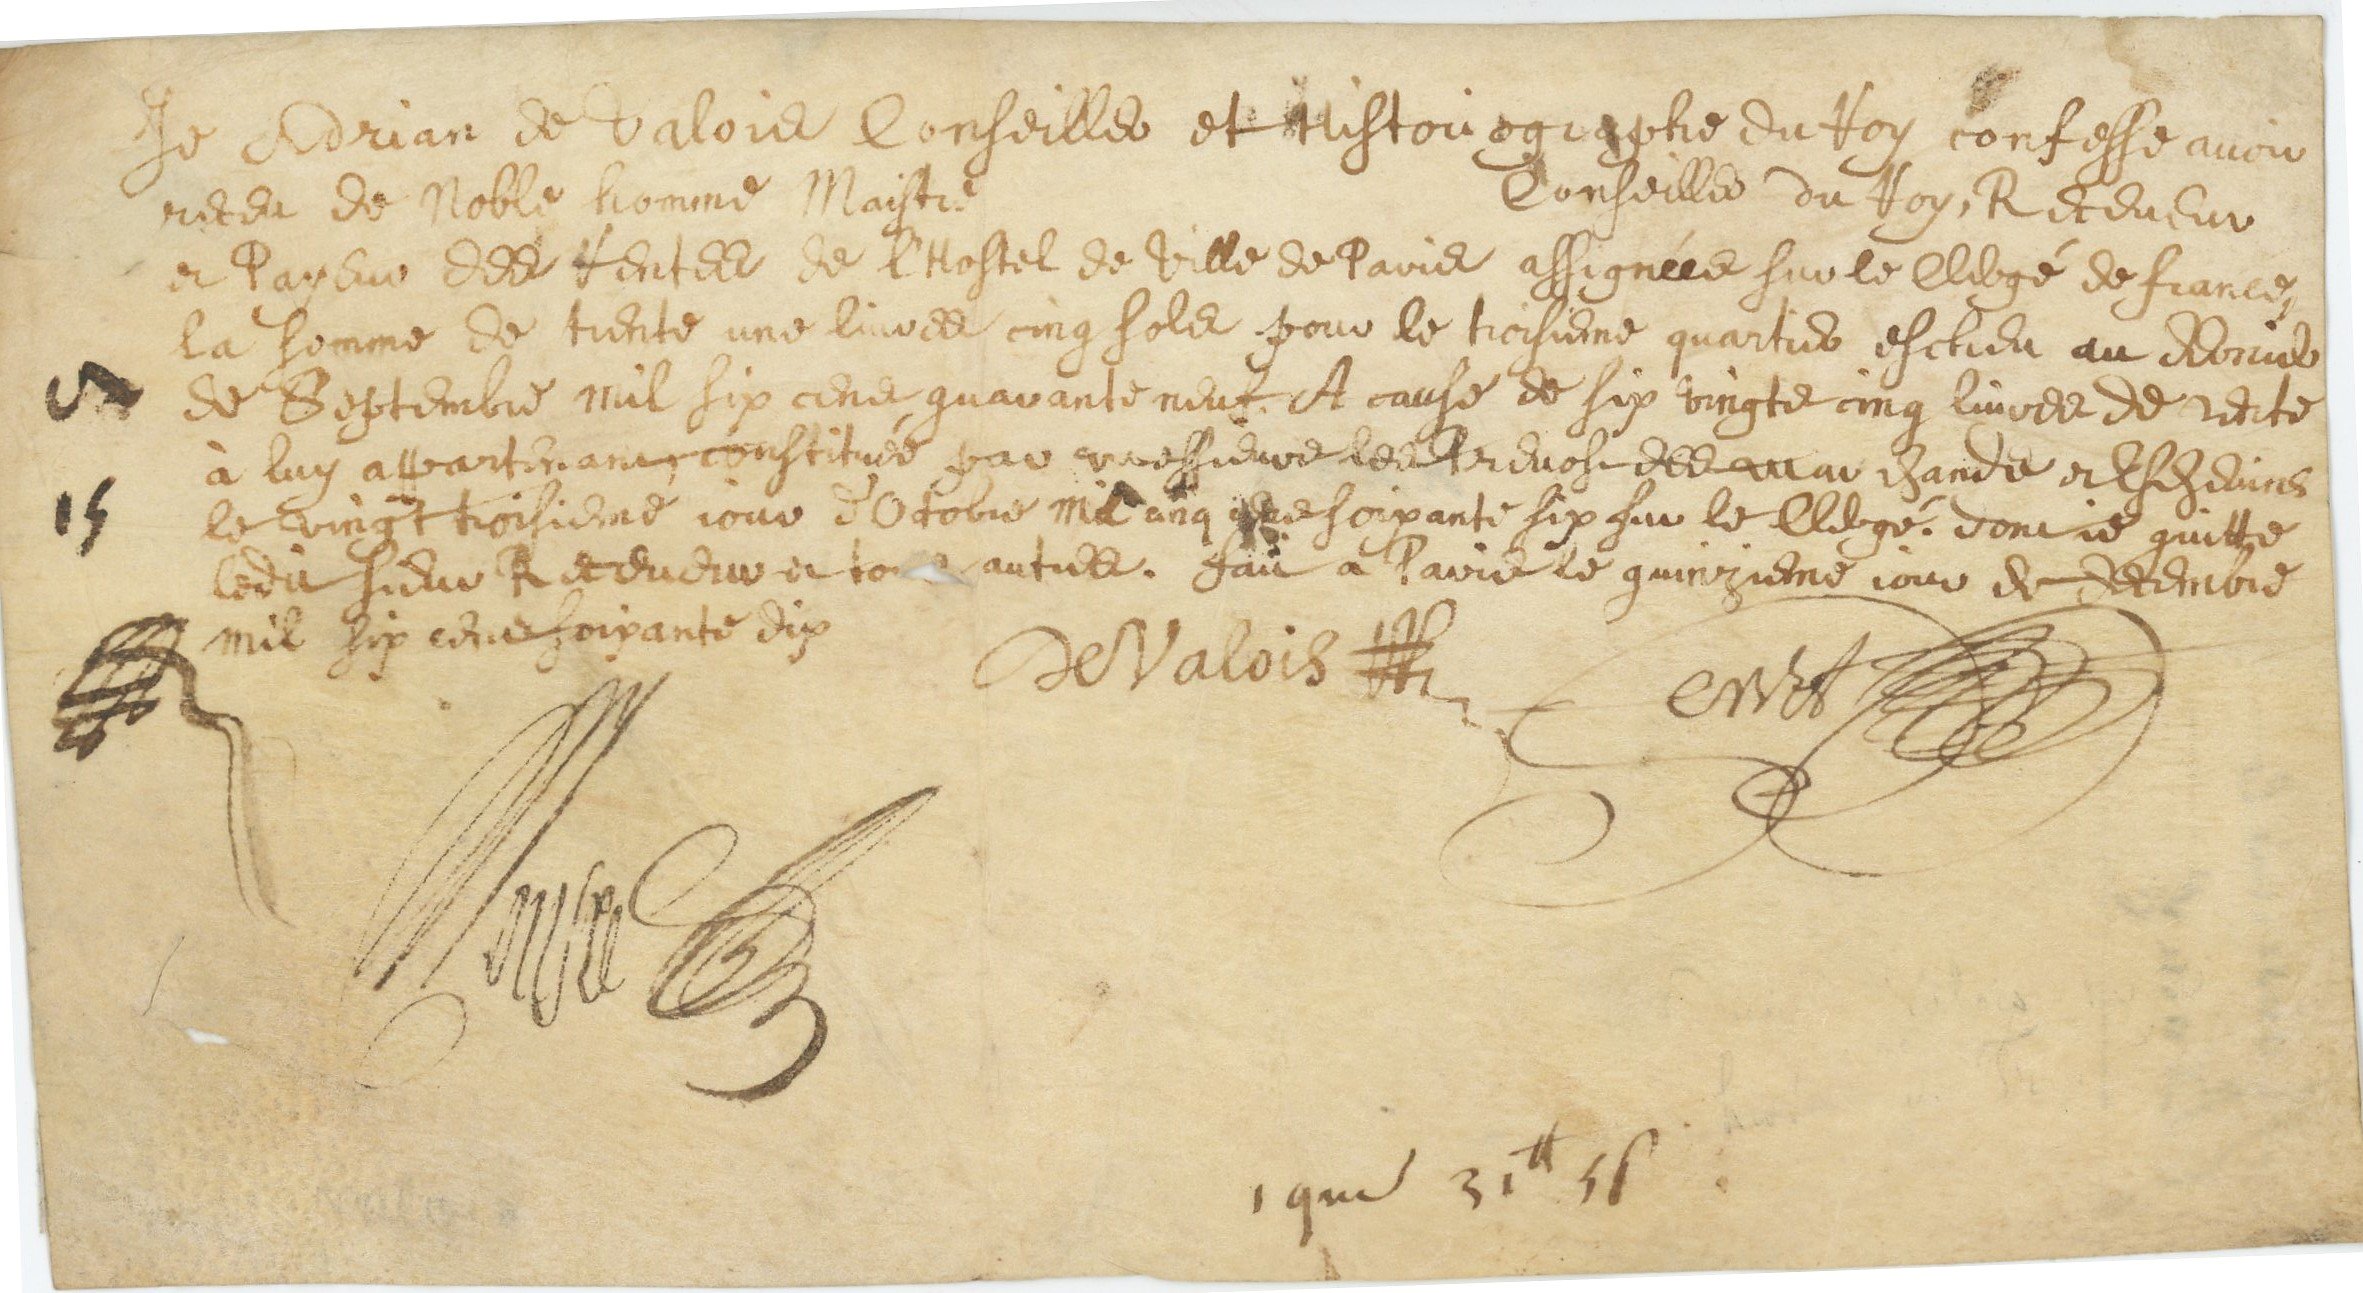 Je Adrian de Valois Conseiller et Historiographe du Roy confesse avoir
receu de Noble homme Maistre Conseiller du Roy, Receveur
et Payeur des Rentes de l'Hostel de Ville de Paris assignées sur le Clergé de france,
la somme de trente une livres cinq sols pour le troisiesme quartier escheu au dernier
de Septembre mil six cens quarante neuf. A cause de six vingts cinq livres de rente
à luy appartenant, constitués par messieurs les Prevost des marchands et Eschevins
le vingt troisiesme iour d'Octobre mil cinq cens soixante six sur le Clergé. dont ie quitte
ledit sieur Receveur et tous autres. fait a Paris le quinziesme iour de decembre
mil six cens soixante dix
5
15
De Valois
1 quar 31tt 5s